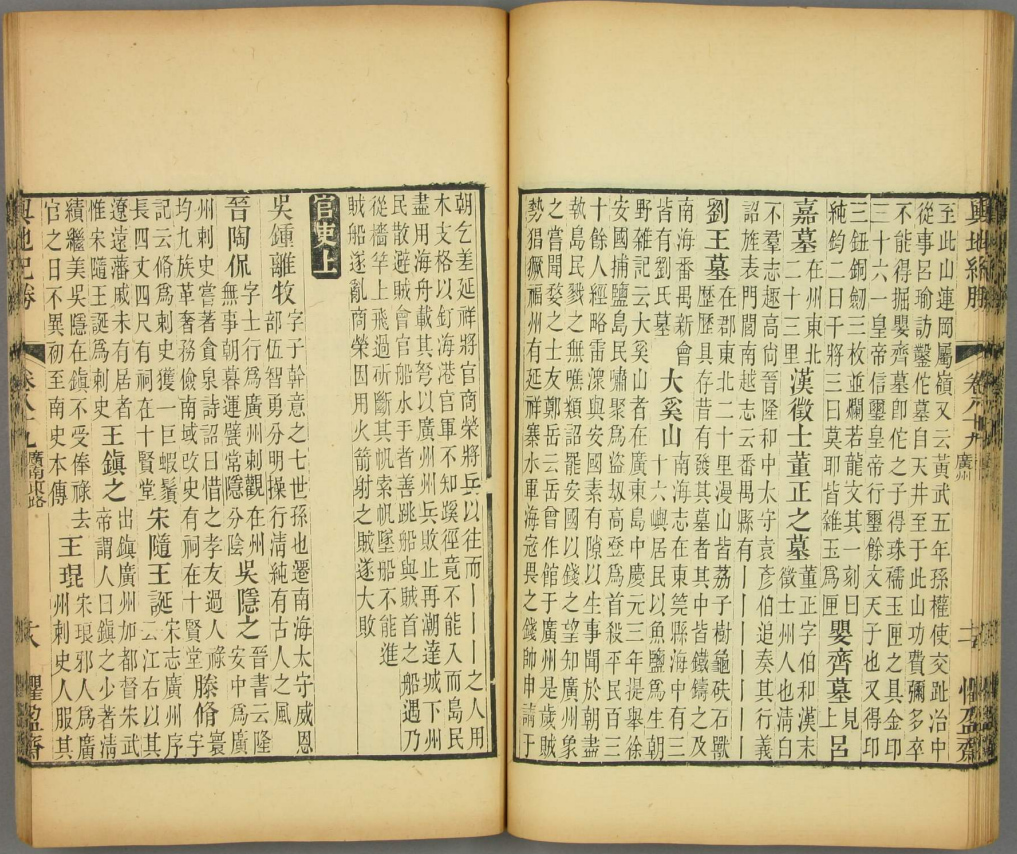 輿地紀勝 卷八十九 廣州 十五 懼盈齋
至此山連岡屬嶺又云黃武五年孫權使交趾治中
從事呂瑜訪鑿佗墓自天井至于此山功費彌多卒
不能得掘嬰齊墓即佗之子得珠襦玉匣之具金印
三十六一皇帝信璽皇帝行璽餘文天子也又得印
三鈕銅劒三枚並爛若龍文其一刻曰
純鈞二曰干將三曰莫耶皆雜玉為匣 嬰齊墓 見上
嘉墓 在州東北二十三里 漢徵士董正之墓 董正字伯和漢末徵士州人也清白
不羣志趣高尚晉隆和中太守袁彥伯追奏其行義
詔旌表門閭南越志云番禺縣有
劉王墓 在郡東北二十里漫山皆荔子樹龜趺石獸
歷歷具存昔有發其墓者其中皆鐵鑄之及
南海番禺新會皆有劉氏墓 大奚山 南海志在東莞縣海中有三
十六嶼居民以魚鹽為生朝
野雜記云大奚山者在廣東島中慶元三年提舉徐
安國捕鹽島民嘯聚為盜劫高登為首殺平民百三
十餘人經略雷潀與安國素有隙以生事聞於朝盡
執島民戮之無噍類詔罷安國以錢之望知廣州象
之嘗聞婺之士友鄭岳云岳曾作館于廣州是歲賊
勢猖獗福州有延祥寨水軍海寇畏之錢帥申請于
朝乞差延祥將官商榮將兵以往而丨丨丨之人用
木支格以釘海港官軍不知蹊徑竟不能入而島民
盡用海舟載其孥以廣州兵敗止再潮達城下州
民散避賊會官船水手者善跳船與賊首之船遇乃
從檣竿上飛過斫斷其帆索帆墜船不能進
賊船遂亂商榮因用火箭射之賊遂大敗
官吏上
吳鍾離牧 字子幹意之七世孫也遷南海太守威恩
部伍智勇分明操行清純有古人之風
晉陶侃 字士行為廣州刺觀在州
無事朝暮運甓常惜分陰 吳隱之 晉書云隆安中為廣
州刺史嘗著貪泉詩詔曰惜之孝友過人祿
均九族革奢務儉南域改史有祠在十賢堂 滕脩 字寰宇
記云脩為刺史獲一巨蝦鬚
長四丈四尺有祠在十賢堂 宋隨王誕 宋志廣州序云江右以其
遼遠藩戚未有居者
惟宋隨王誕為刺史 王鎮之 出鎮廣州加都督朱武
帝謂人曰鎮之少著清
績繼美吳隱在鎮不受俸祿去
官之日不異初至南史本傳 王琨 宋琅邪人為廣
州刺史人服其
輿地紀勝 卷八十九 廣南東路 六 懼盈齋